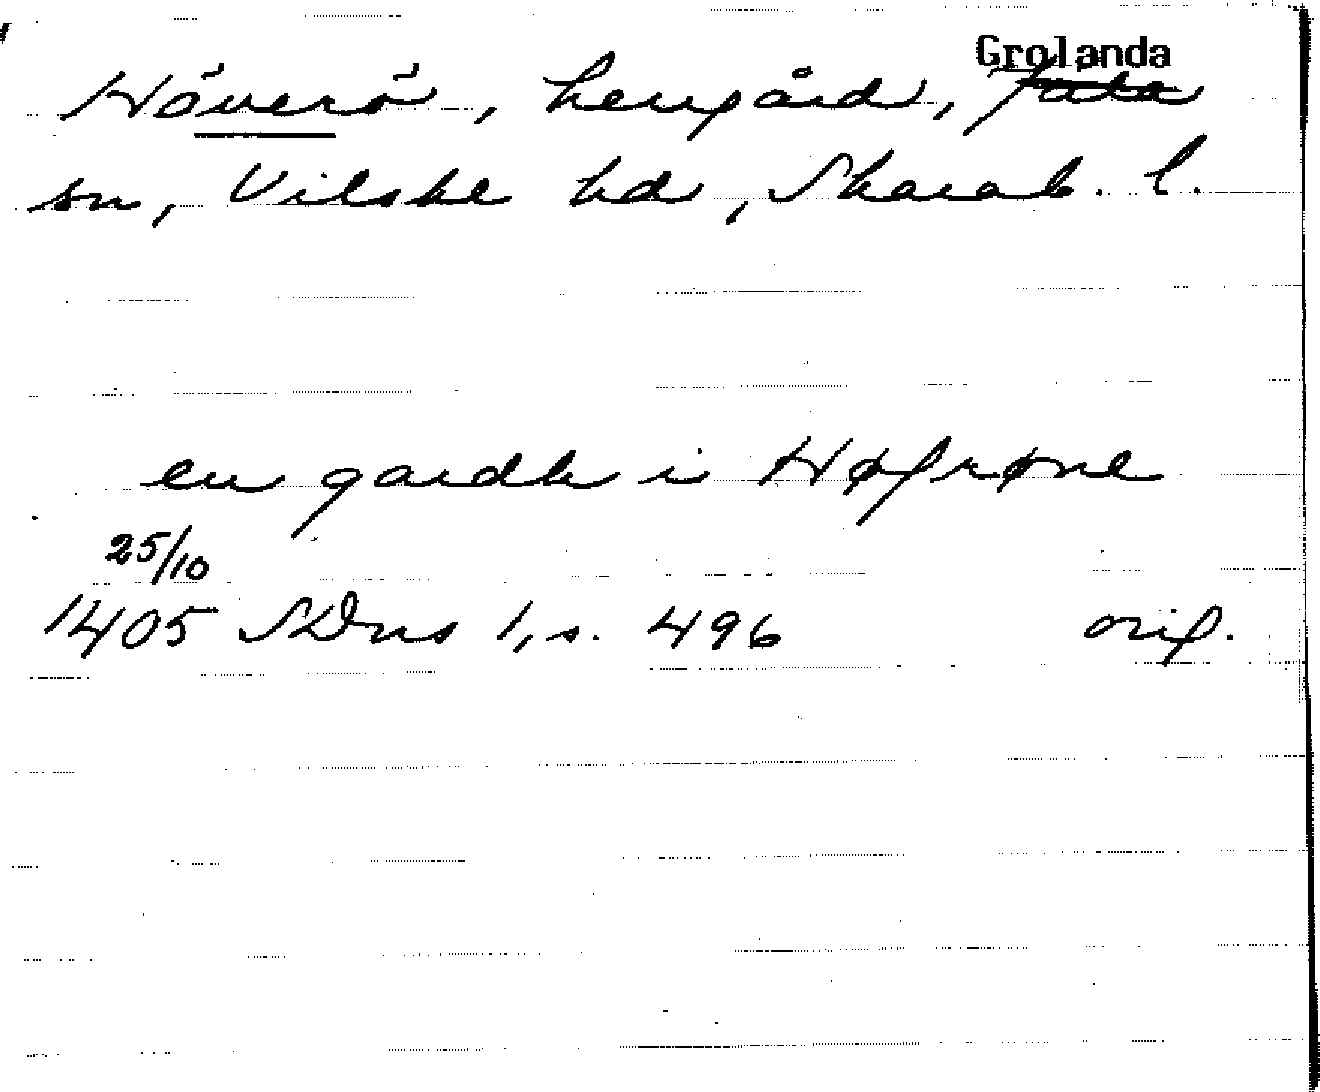 Grolanda
Höverö, herrgård, Jäla
sn, Vilske hd, Skarab. l.
en gardh i Høfrøne
25/10
1405 SDns 1, s. 496 orig.